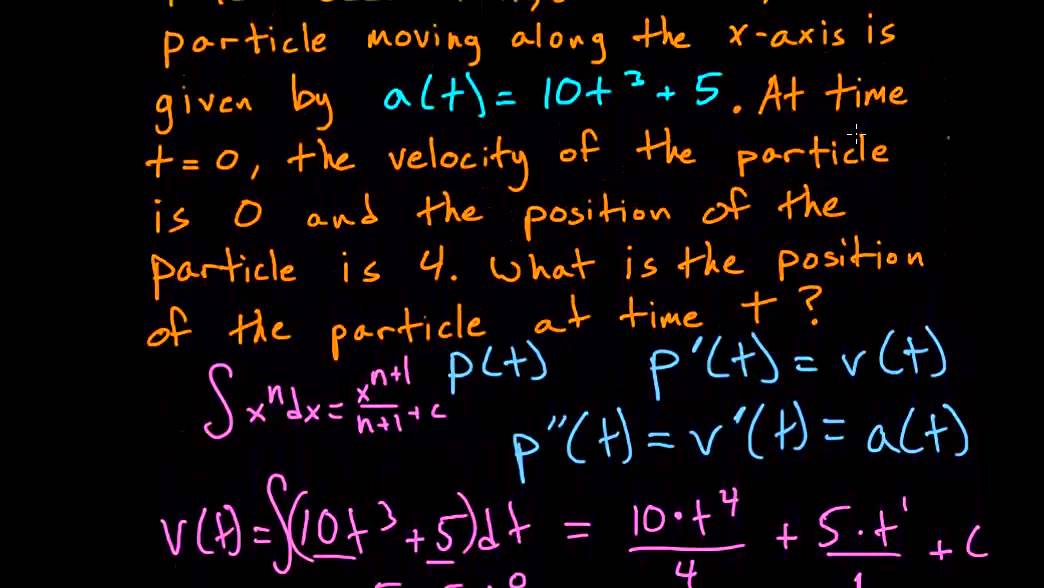 particle moving along the x-axis is
given by a(t) = 10t³ + 5. At time
t = 0, the velocity of the particle
is 0 and the position of the
particle is 4. What is the position
of the particle at time t?
∫xⁿdx = xⁿ⁺¹/n+1 + c p(t) p'(t) = v(t)
p''(t) = v'(t) = a(t)
v(t) = ∫(10t³ + 5)dt = 10·t⁴/4 + 5·t¹/1 + c